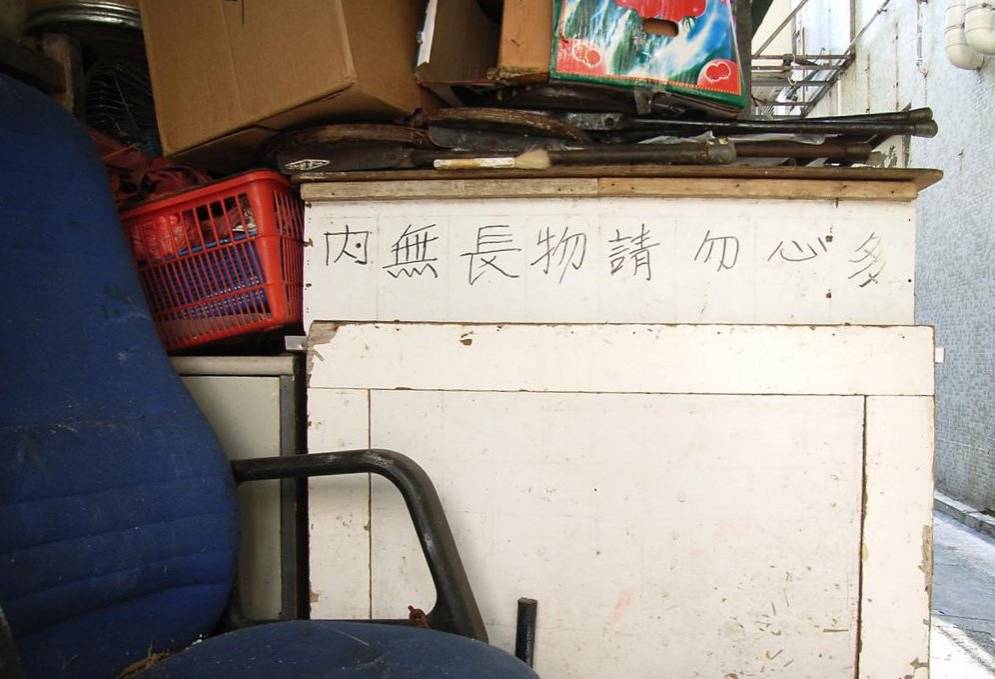 内無長物請勿心多